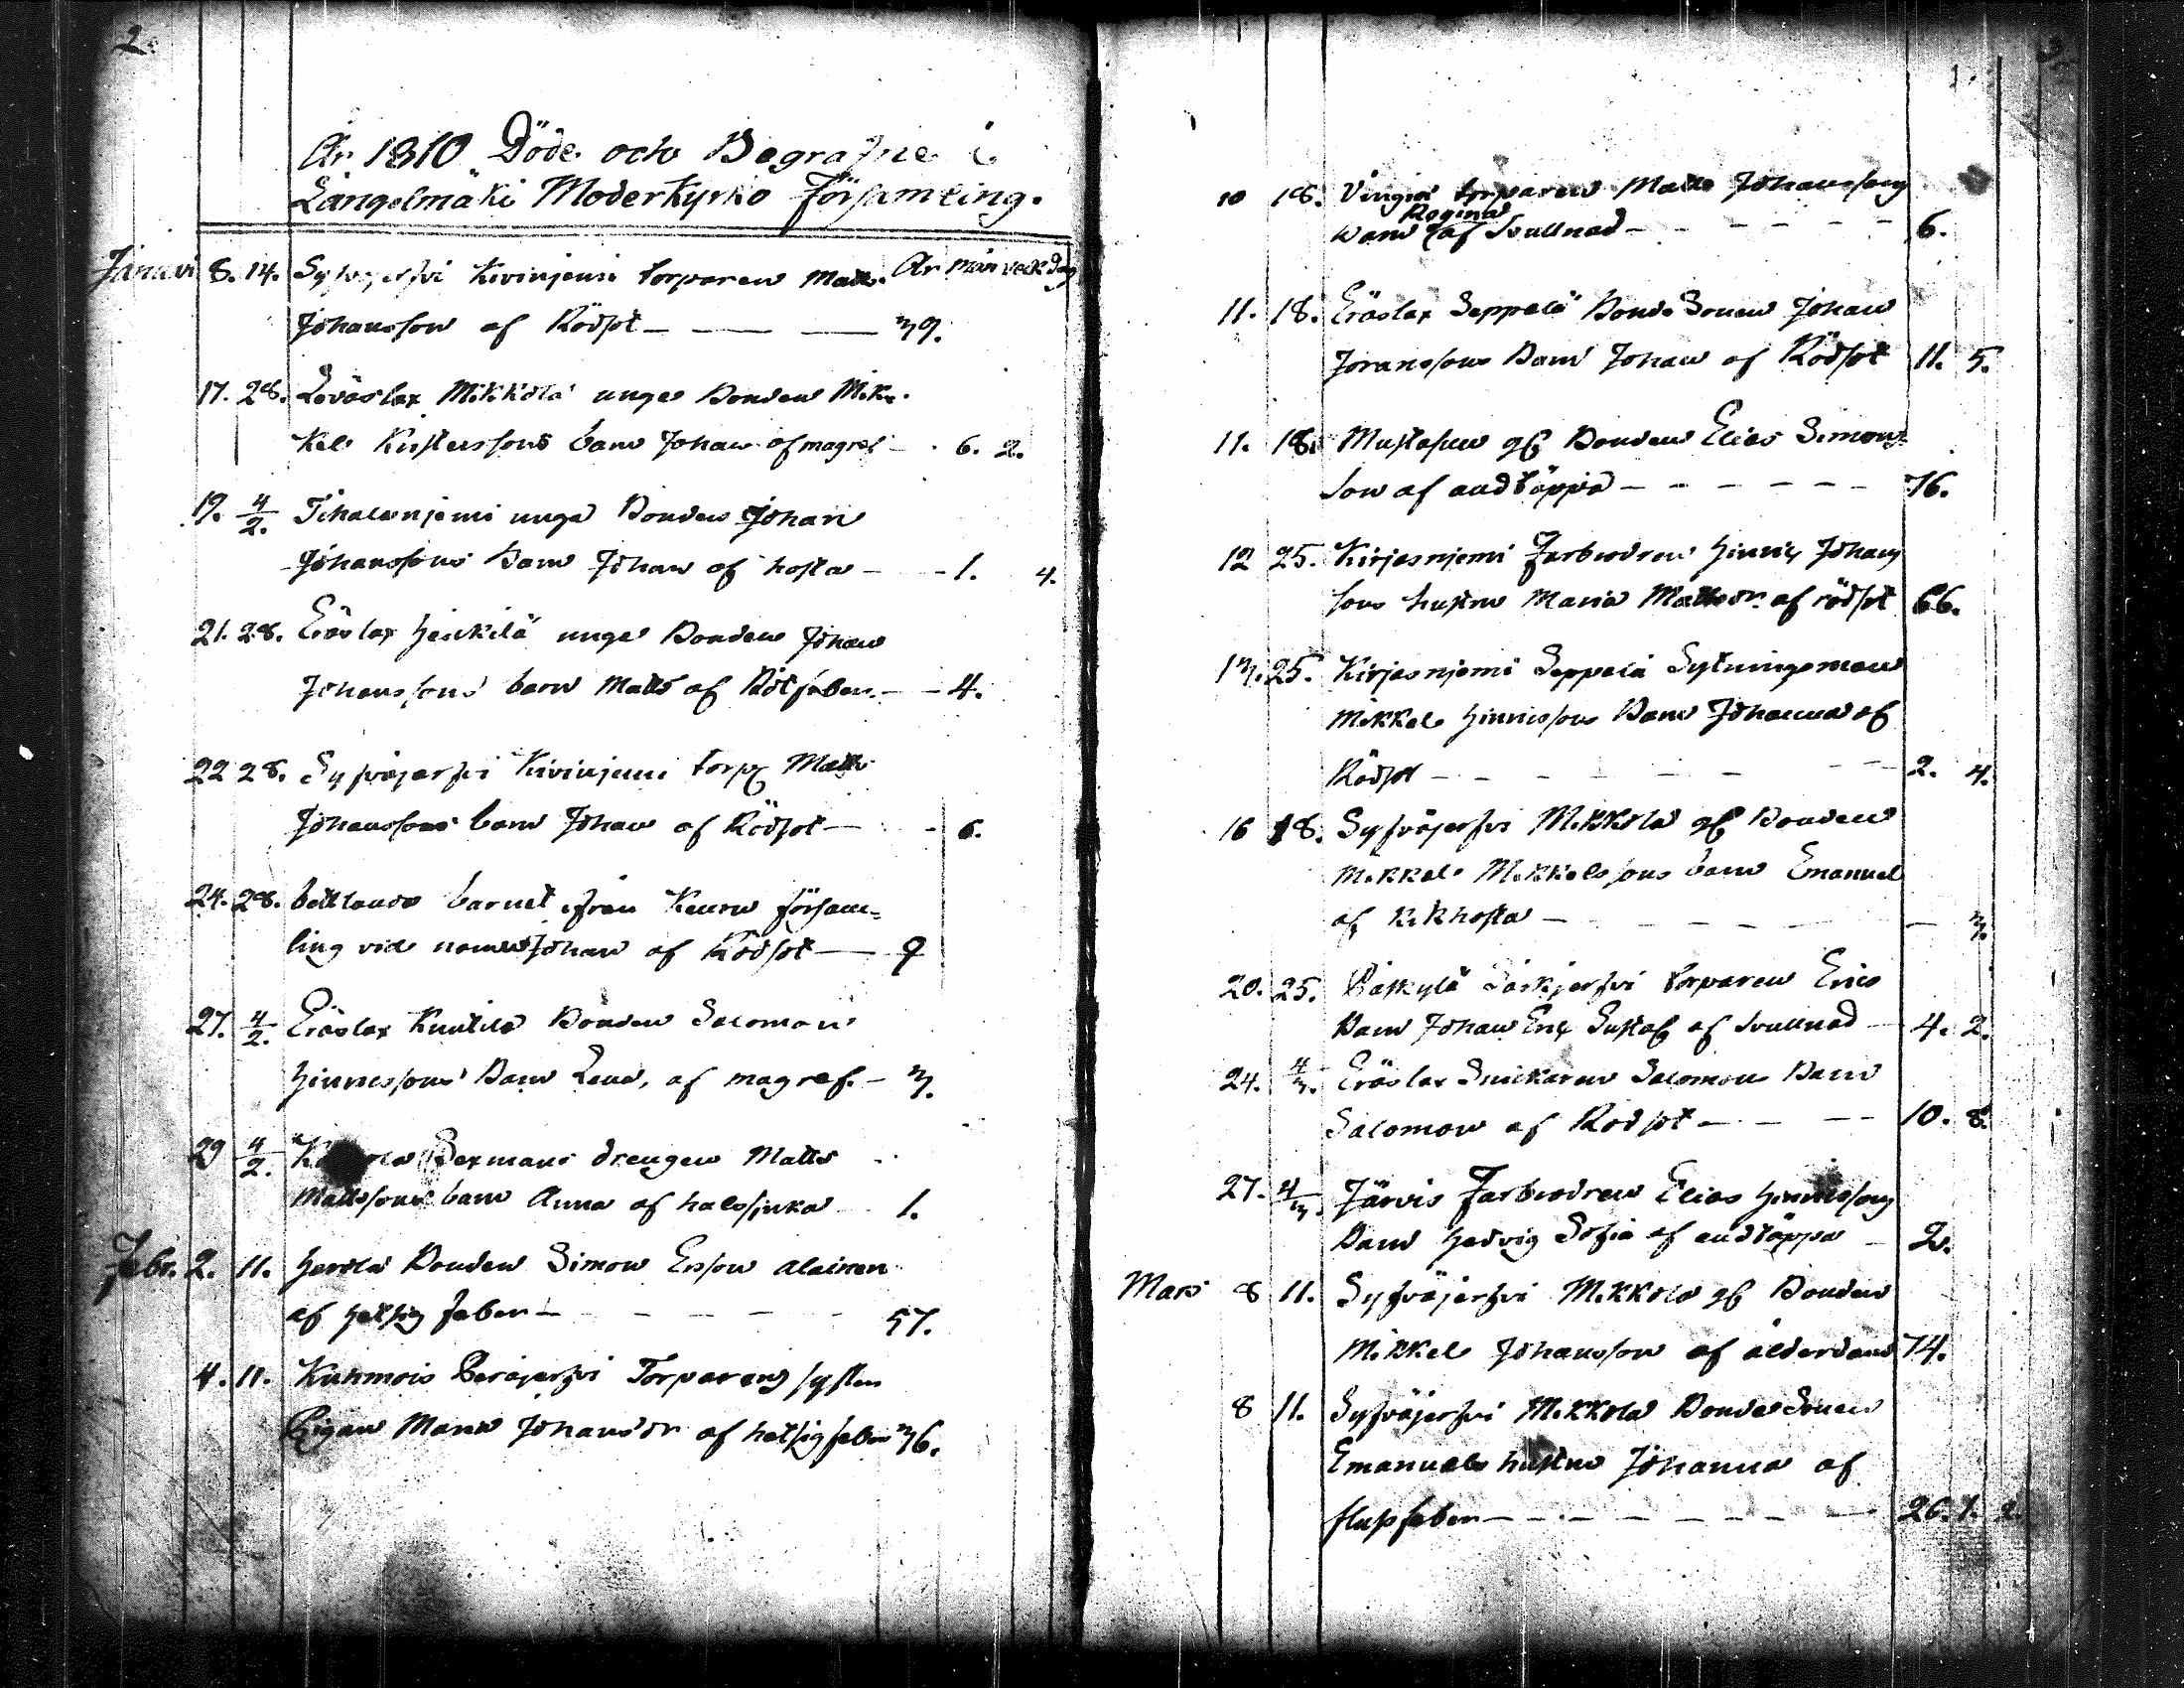 2.
År 1810 Döde och Begrafne i
Längelmäki Moderkyrko Församling.
År mån veck dag
Januari 8. 14. Syfväjerfvi Kivinjemi torparen Matts
Johansson af Rödsot — 39.
17. 28. Leväslax Mikkola unge Bonden Mik-
kel Kusterssons barn Johan af magref — 6. 2.
19. 4/2. Tihalanjemi unga Bonden Johan
Johanssons Barn Johan af hosta — 1. 4.
21. 28. Eräslax Heickilä unge Bonden Johan
Johanssons barn Matts af Rötfeber — 4.
22 28. Syfväjerfvi Kivinjemi torp Matts
Johanssons barn Johan af Rödsot — 6.
24. 28. bettlande barnet ifrån Keuru församl=
ling vid namn Johan af Rödsot — 9
27. 4/2. Eräslax Knutila Bonden Salomon
Hinricssons Barn Lena, af magref. — 3.
29 4/2. Sexmans drengen Matts
Mattssons barn Anna af halssjuka 1.
Febr. 2. 11. Herola Bonden Simon Ersson Alainen
af hetsig feber — 57.
4. 11. Kuhmois Peräjerfvi Torparens syster
Pigan Maria Johansdr af hetsig feber 36.
10 18. Vingiä torparen Matts Johanssons
Regina
barn af Svullnad — 6.
11. 18. Eräslax Seppelä Bonde Sonen Johan
Joranssons Barn Johan af Rödsot 11. 5.
11. 18. Mustasuen gl Bonden Elias Simons
son af andtäppa — 76.
12 25. Kirjasnjemi Farbrodren Hinric Johans
sons hustru Maria Mattsdr. af rödsot 66.
13. 25. Kirjasnjemi Seppelä Sytningsman
Mikkel Hinricssons Barn Johanna af
Rödsot — 2. 4.
16 18. Syfväjerfvi Mikkola gl Bonden
Mikkel Mikkelssons barn Emanuel
af Kikhosta — 3.
20. 25. Särkjerfvi torparen Erics
Barn Johan Eric Gustaf af Svullnad — 4. 2.
24. 4/3. Eräslax Snickaren Salomons Barn
Salomon af Rödsot — 10. 8.
27. 4/3. Järvis Farbrodren Elias Hinricssons
Barn Hedvig Sofia af andtäppa — 2.
Mars 8 11. Syfväjerfvi Mikkola gl Bonden
Mikkel Johansson af ålderdom 74.
8 11. Syfväjerfvi Mikkola Bonde Sonen
Emanuels hustru Johanna af
flussfeber — 26. 1. 2.